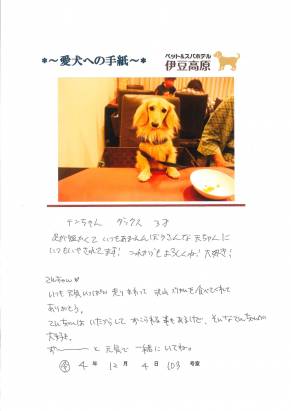 ペット&スパホテル
伊豆高原
*～愛犬への手紙～*
テンちゃん ダックス 3才
足が短かくて いつもあまえんぼうさんな 天ちゃんに
いつもいやされてます! これからもよろしくね! 大好き!
てんちゃん♥
いつも元気いっぱい 走りまわって 沢山 ごはんを食べてくれて
ありがとう。
てんちゃんは いたずらして おこられる事もあるけど、そんなてんちゃんが
大好き。
ずーーっと 元気で 一緒にいてね。
4 年 12 月 4 日 103 号室